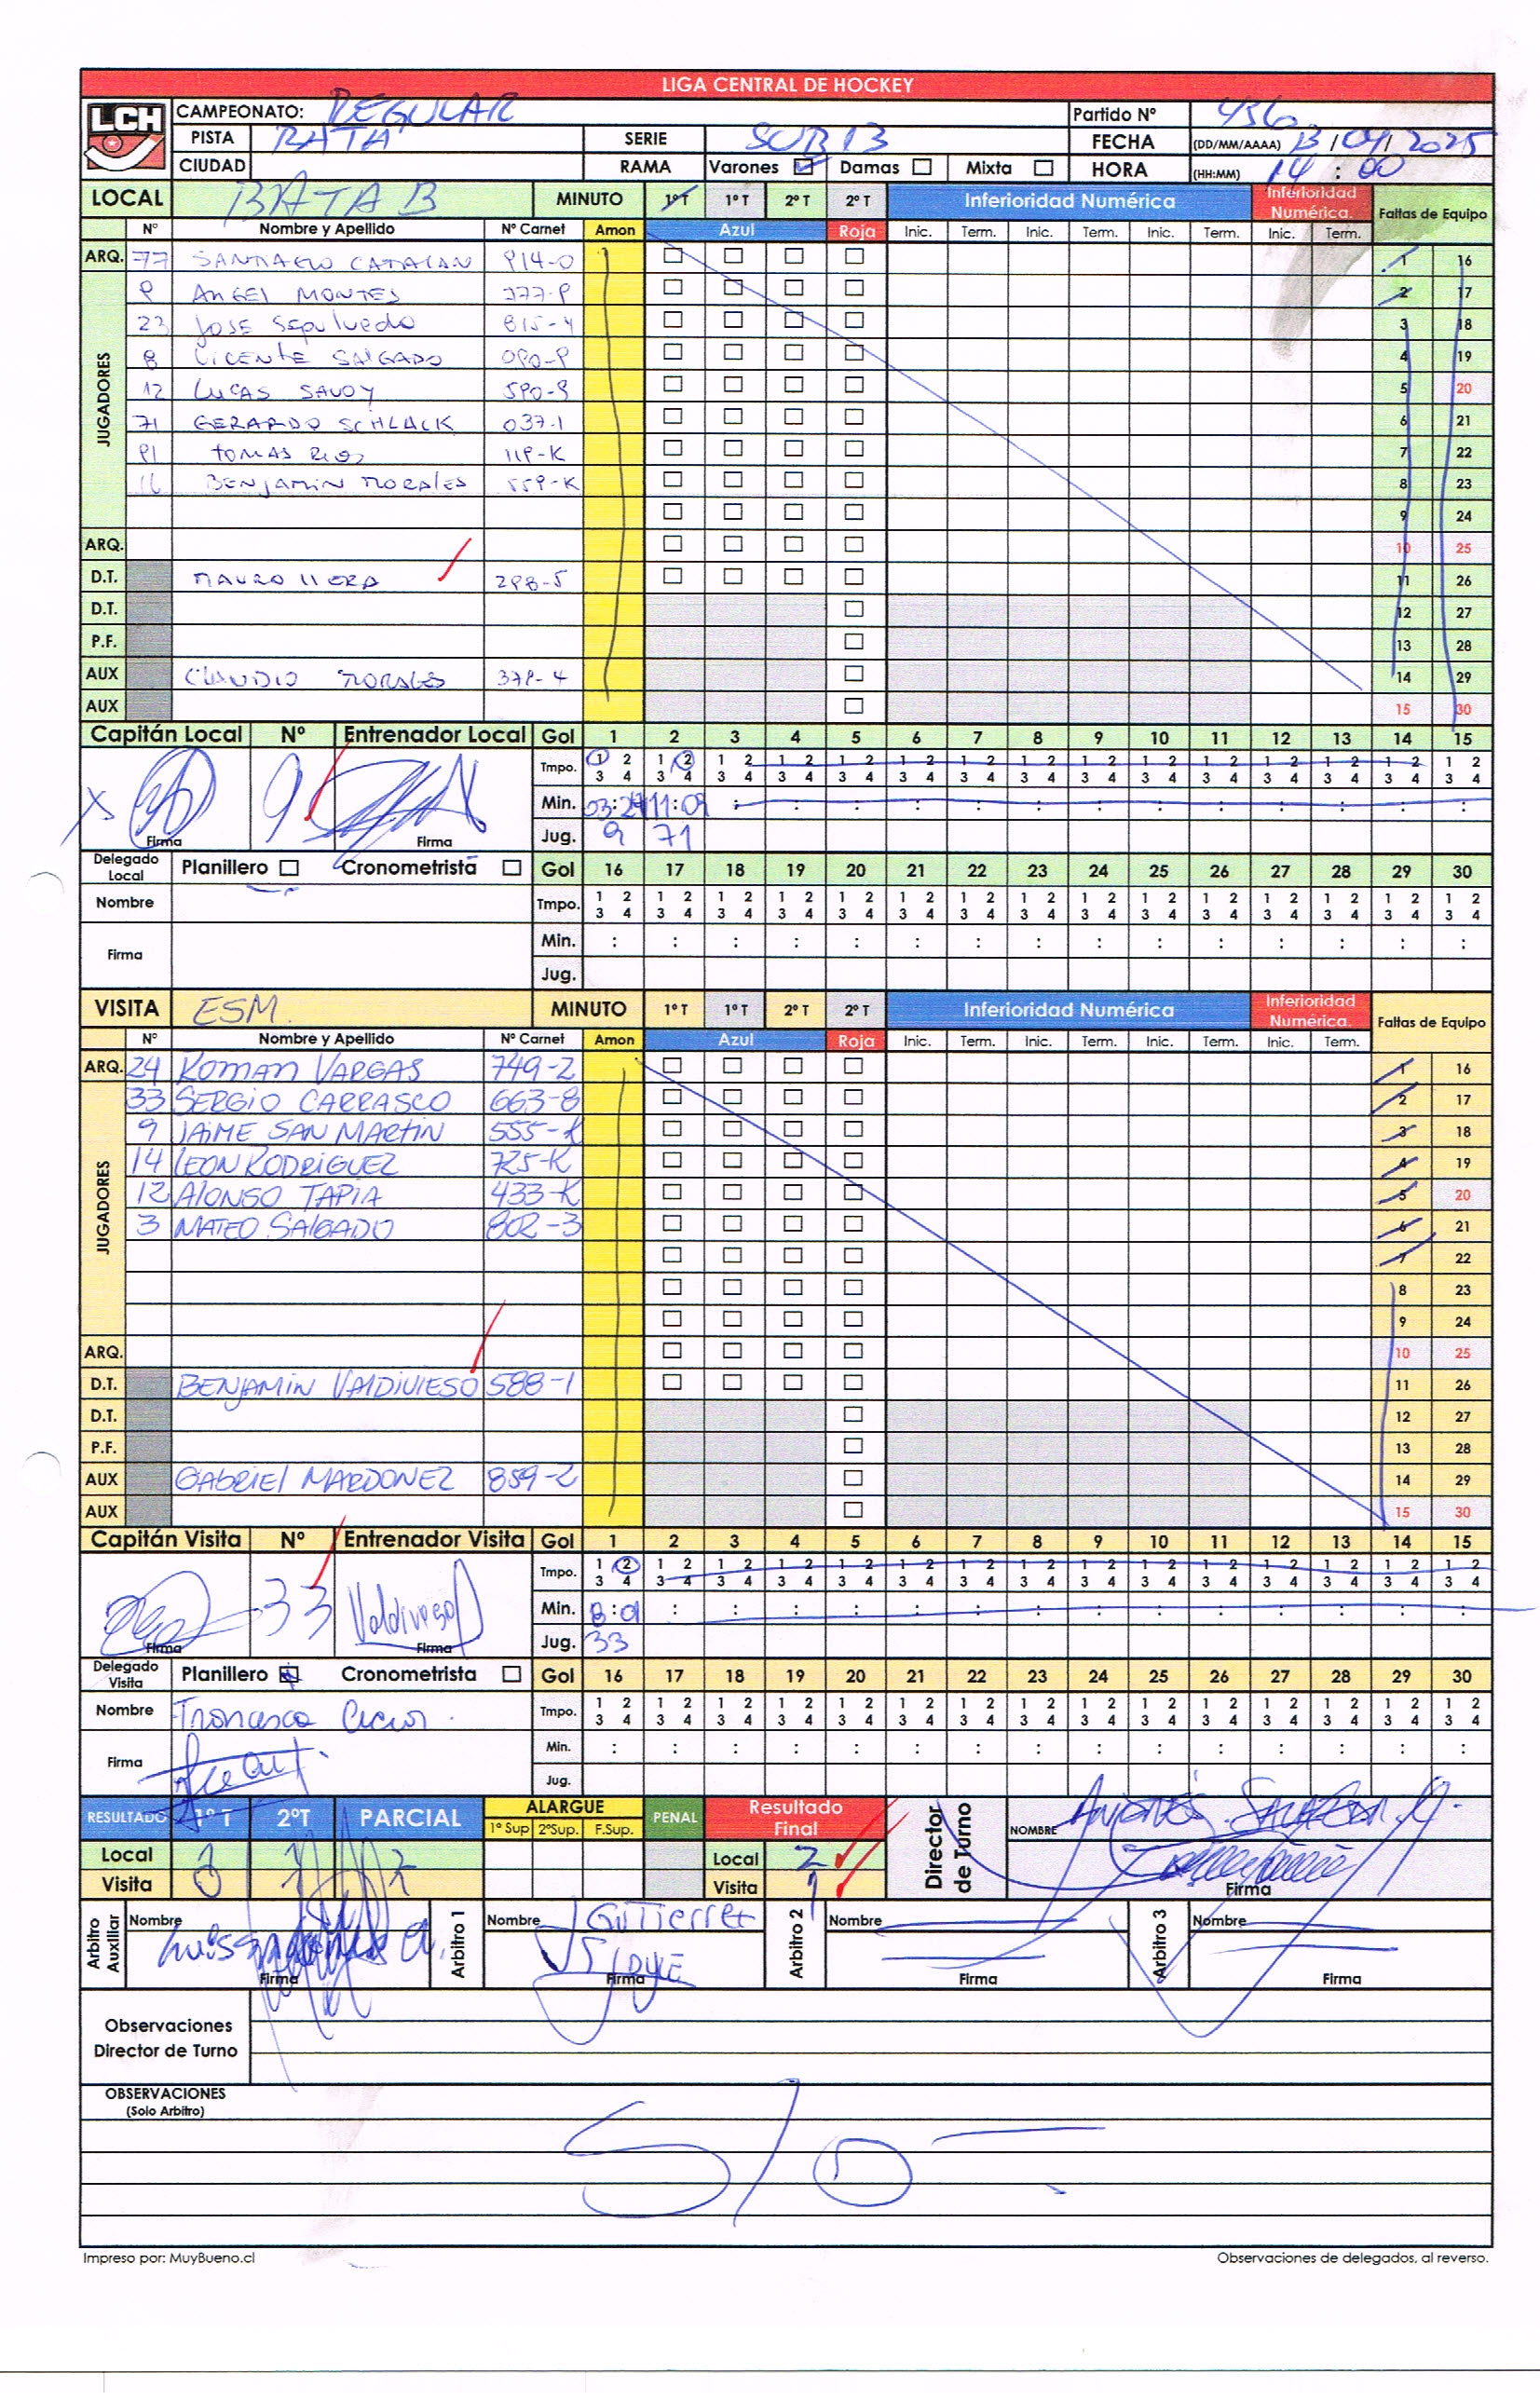 LIGA CENTRAL DE HOCKEY
LCH
CAMPEONATO: REGULAR Partido Nº 456
PISTA BATA SERIE SUB 13 FECHA (DD/MM/AAAA) 13/04/2025
CIUDAD RAMA Varones Damas Mixta HORA (HH:MM) 14:00
LOCAL BATA B MINUTO 1º T 1º T 2º T 2º T Inferioridad Numérica Inferioridad Numérica. Faltas de Equipo
Nº Nombre y Apellido Nº Carnet Amon Azul Roja Inic. Term. Inic. Term. Inic. Term. Inic. Term.
ARQ. 77 SANTIAGO CATALAN 914-0 1 16
JUGADORES
9 ANGEL MONTES 377-9 2 17
23 JOSE Sepulveda 815-4 3 18
8 VICENTE SALGADO 090-9 4 19
12 LUCAS SAVOY 590-8 5 20
71 GERARDO SCHLACK 037-1 6 21
91 TOMAS RIOS 119-K 7 22
16 BENJAMIN MORALES 559-K 8 23
9 24
ARQ. 10 25
D.T. 298-5 11 26
D.T. 12 27
P.F. 13 28
AUX CLAUDIO MORALES 378-4 14 29
AUX 15 30
Capitán Local Nº Entrenador Local Gol 1 2 3 4 5 6 7 8 9 10 11 12 13 14 15
Tmpo. 1 2 1 2 1 2 1 2 1 2 1 2 1 2 1 2 1 2 1 2 1 2 1 2 1 2 1 2 1 2
3 4 3 4 3 4 3 4 3 4 3 4 3 4 3 4 3 4 3 4 3 4 3 4 3 4 3 4 3 4
9 Min. 03:24 11:09 : : : : : : : : : : : : :
Firma Firma Jug. 9 71
Delegado Local Planillero Cronometrista Gol 16 17 18 19 20 21 22 23 24 25 26 27 28 29 30
Nombre Tmpo. 1 2 1 2 1 2 1 2 1 2 1 2 1 2 1 2 1 2 1 2 1 2 1 2 1 2 1 2 1 2
3 4 3 4 3 4 3 4 3 4 3 4 3 4 3 4 3 4 3 4 3 4 3 4 3 4 3 4 3 4
Firma Min. : : : : : : : : : : : : : : :
Jug.
VISITA ESM. MINUTO 1º T 1º T 2º T 2º T Inferioridad Numérica Inferioridad Numérica. Faltas de Equipo
Nº Nombre y Apellido Nº Carnet Amon Azul Roja Inic. Term. Inic. Term. Inic. Term. Inic. Term.
ARQ. 24 ROMAN VARGAS 749-2 1 16
JUGADORES
33 SERGIO CARRASCO 663-8 2 17
9 JAIME SAN MARTIN 555-K 3 18
14 LEON RODRIGUEZ 725-K 4 19
12 ALONSO TAPIA 433-K 5 20
3 MATEO SALGADO 802-3 6 21
7 22
8 23
9 24
ARQ. 10 25
D.T. BENJAMIN VALDIVIESO 588-1 11 26
D.T. 12 27
P.F. 13 28
AUX GABRIEL MARDONEZ 859-2 14 29
AUX 15 30
Capitán Visita Nº Entrenador Visita Gol 1 2 3 4 5 6 7 8 9 10 11 12 13 14 15
Tmpo. 1 2 1 2 1 2 1 2 1 2 1 2 1 2 1 2 1 2 1 2 1 2 1 2 1 2 1 2 1 2
3 4 3 4 3 4 3 4 3 4 3 4 3 4 3 4 3 4 3 4 3 4 3 4 3 4 3 4 3 4
33 Valdivieso Min. 8:01 : : : : : : : : : : : : : :
Firma Firma Jug. 33
Delegado Visita Planillero Cronometrista Gol 16 17 18 19 20 21 22 23 24 25 26 27 28 29 30
Nombre Tmpo. 1 2 1 2 1 2 1 2 1 2 1 2 1 2 1 2 1 2 1 2 1 2 1 2 1 2 1 2 1 2
3 4 3 4 3 4 3 4 3 4 3 4 3 4 3 4 3 4 3 4 3 4 3 4 3 4 3 4 3 4
Firma Min. : : : : : : : : : : : : : : :
Jug.
RESULTADO 1º T 2ºT PARCIAL ALARGUE PENAL Resultado Final Director de Turno NOMBRE
1º Sup 2ºSup. F.Sup.
Local 1 1 2 Local 2
Visita 0 1 Visita 1 Firma
Arbitro Auxiliar Nombre Arbitro 1 Nombre J Gutierrez Arbitro 2 Nombre Arbitro 3 Nombre
Luis
Firma Firma Firma Firma
Observaciones
Director de Turno
OBSERVACIONES
(Solo Arbitro)
S/O
Impreso por: MuyBueno.cl Observaciones de delegados, al reverso.